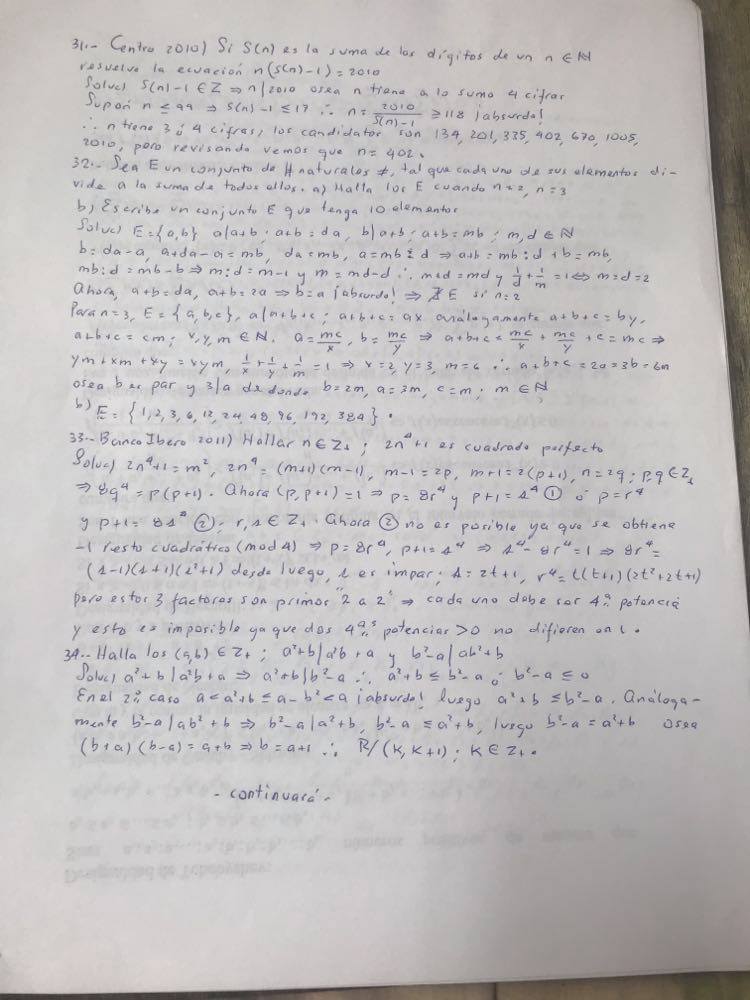 31.- Centro 2010) Si S(n) es la suma de los dígitos de un n ∈ ℕ
resuelve la ecuación n(S(n)-1) = 2010
Soluc) S(n)-1 ∈ Z ⇒ n|2010 osea n tiene a lo sumo 4 cifras
Supón n ≤ 99 ⇒ S(n)-1 ≤ 17 ∴ n = 2010/(S(n)-1) ≥ 118 ¡absurdo!
∴ n tiene 3 ó 4 cifras, los candidatos son 134, 201, 335, 402, 670, 1005,
2010, pero revisando vemos que n = 402.
32.- Sea E un conjunto de # naturales ≠, tal que cada uno de sus elementos di-
vide a la suma de todos ellos. a) Halla los E cuando n=2, n=3
b) Escribe un conjunto E que tenga 10 elementos
Soluc) E={a,b} a|a+b; a+b = da, b|a+b; a+b = mb; m,d ∈ ℕ
b = da-a, a+da-a = mb, da = mb, a = mb:d ⇒ a+b = mb:d + b = mb,
mb:d = mb-b ⇒ m:d = m-1 y m = md-d ∴ m+d = md y 1/d + 1/m = 1 ⇔ m=d=2
Ahora, a+b = da, a+b = 2a ⇒ b=a ¡absurdo! ⇒ ∄ E si n=2
Para n=3, E = {a,b,c}, a|a+b+c; a+b+c = ax análogamente a+b+c = by,
a+b+c = cm; x,y,m ∈ N. a = mc/x, b = mc/y ⇒ a+b+c = mc/x + mc/y + c = mc ⇒
ym + xm + xy = xym, 1/x + 1/y + 1/m = 1 ⇒ x=2, y=3, m=6 ∴ a+b+c = 2a = 3b = 6m
osea b es par y 3|a de donde b=2m, a=3m, c=m; m ∈ N
b) E = {1,2,3,6,12,24,48,96,192,384}.
33.- Banco Ibero 2011) Hallar n ∈ Z₊; 2n⁴+1 es cuadrado perfecto
Soluc) 2n⁴+1 = m², 2n⁴ = (m+1)(m-1), m-1 = 2p, m+1 = 2(p+1), n = 2q; p,q ∈ Z₊
⇒ 8q⁴ = p(p+1). Ahora (p,p+1) = 1 ⇒ p = 8r⁴ y p+1 = s⁴ ① ó p = r⁴
y p+1 = 8s⁴ ②; r,s ∈ Z₊. Ahora ② no es posible ya que se obtiene
-1 resto cuadrático (mod 4) ⇒ p = 8r⁴, p+1 = s⁴ ⇒ s⁴ - 8r⁴ = 1 ⇒ 8r⁴ =
(s-1)(s+1)(s²+1) desde luego, s es impar; s = 2t+1, r⁴ = t(t+1)(2t²+2t+1)
pero estos 3 factores son primos "2 a 2" ⇒ cada uno debe ser 4ª potencia
y esto es imposible ya que dos 4ªˢ potencias >0 no difieren en 1.
34.- Halla los (a,b) ∈ Z₊; a²+b|a²b+a y b²-a|ab²+b
Soluc) a²+b|a²b+a ⇒ a²+b|b²-a ∴ a²+b ≤ b²-a ó b²-a ≤ 0
En el 2º caso a < a²+b ≤ a-b² < a ¡absurdo! luego a²+b ≤ b²-a. Análoga-
mente b²-a|ab²+b ⇒ b²-a|a²+b, b²-a ≤ a²+b, luego b²-a = a²+b osea
(b+a)(b-a) = a+b ⇒ b = a+1 ∴ R/(K, K+1); K ∈ Z₊.
- continuará -